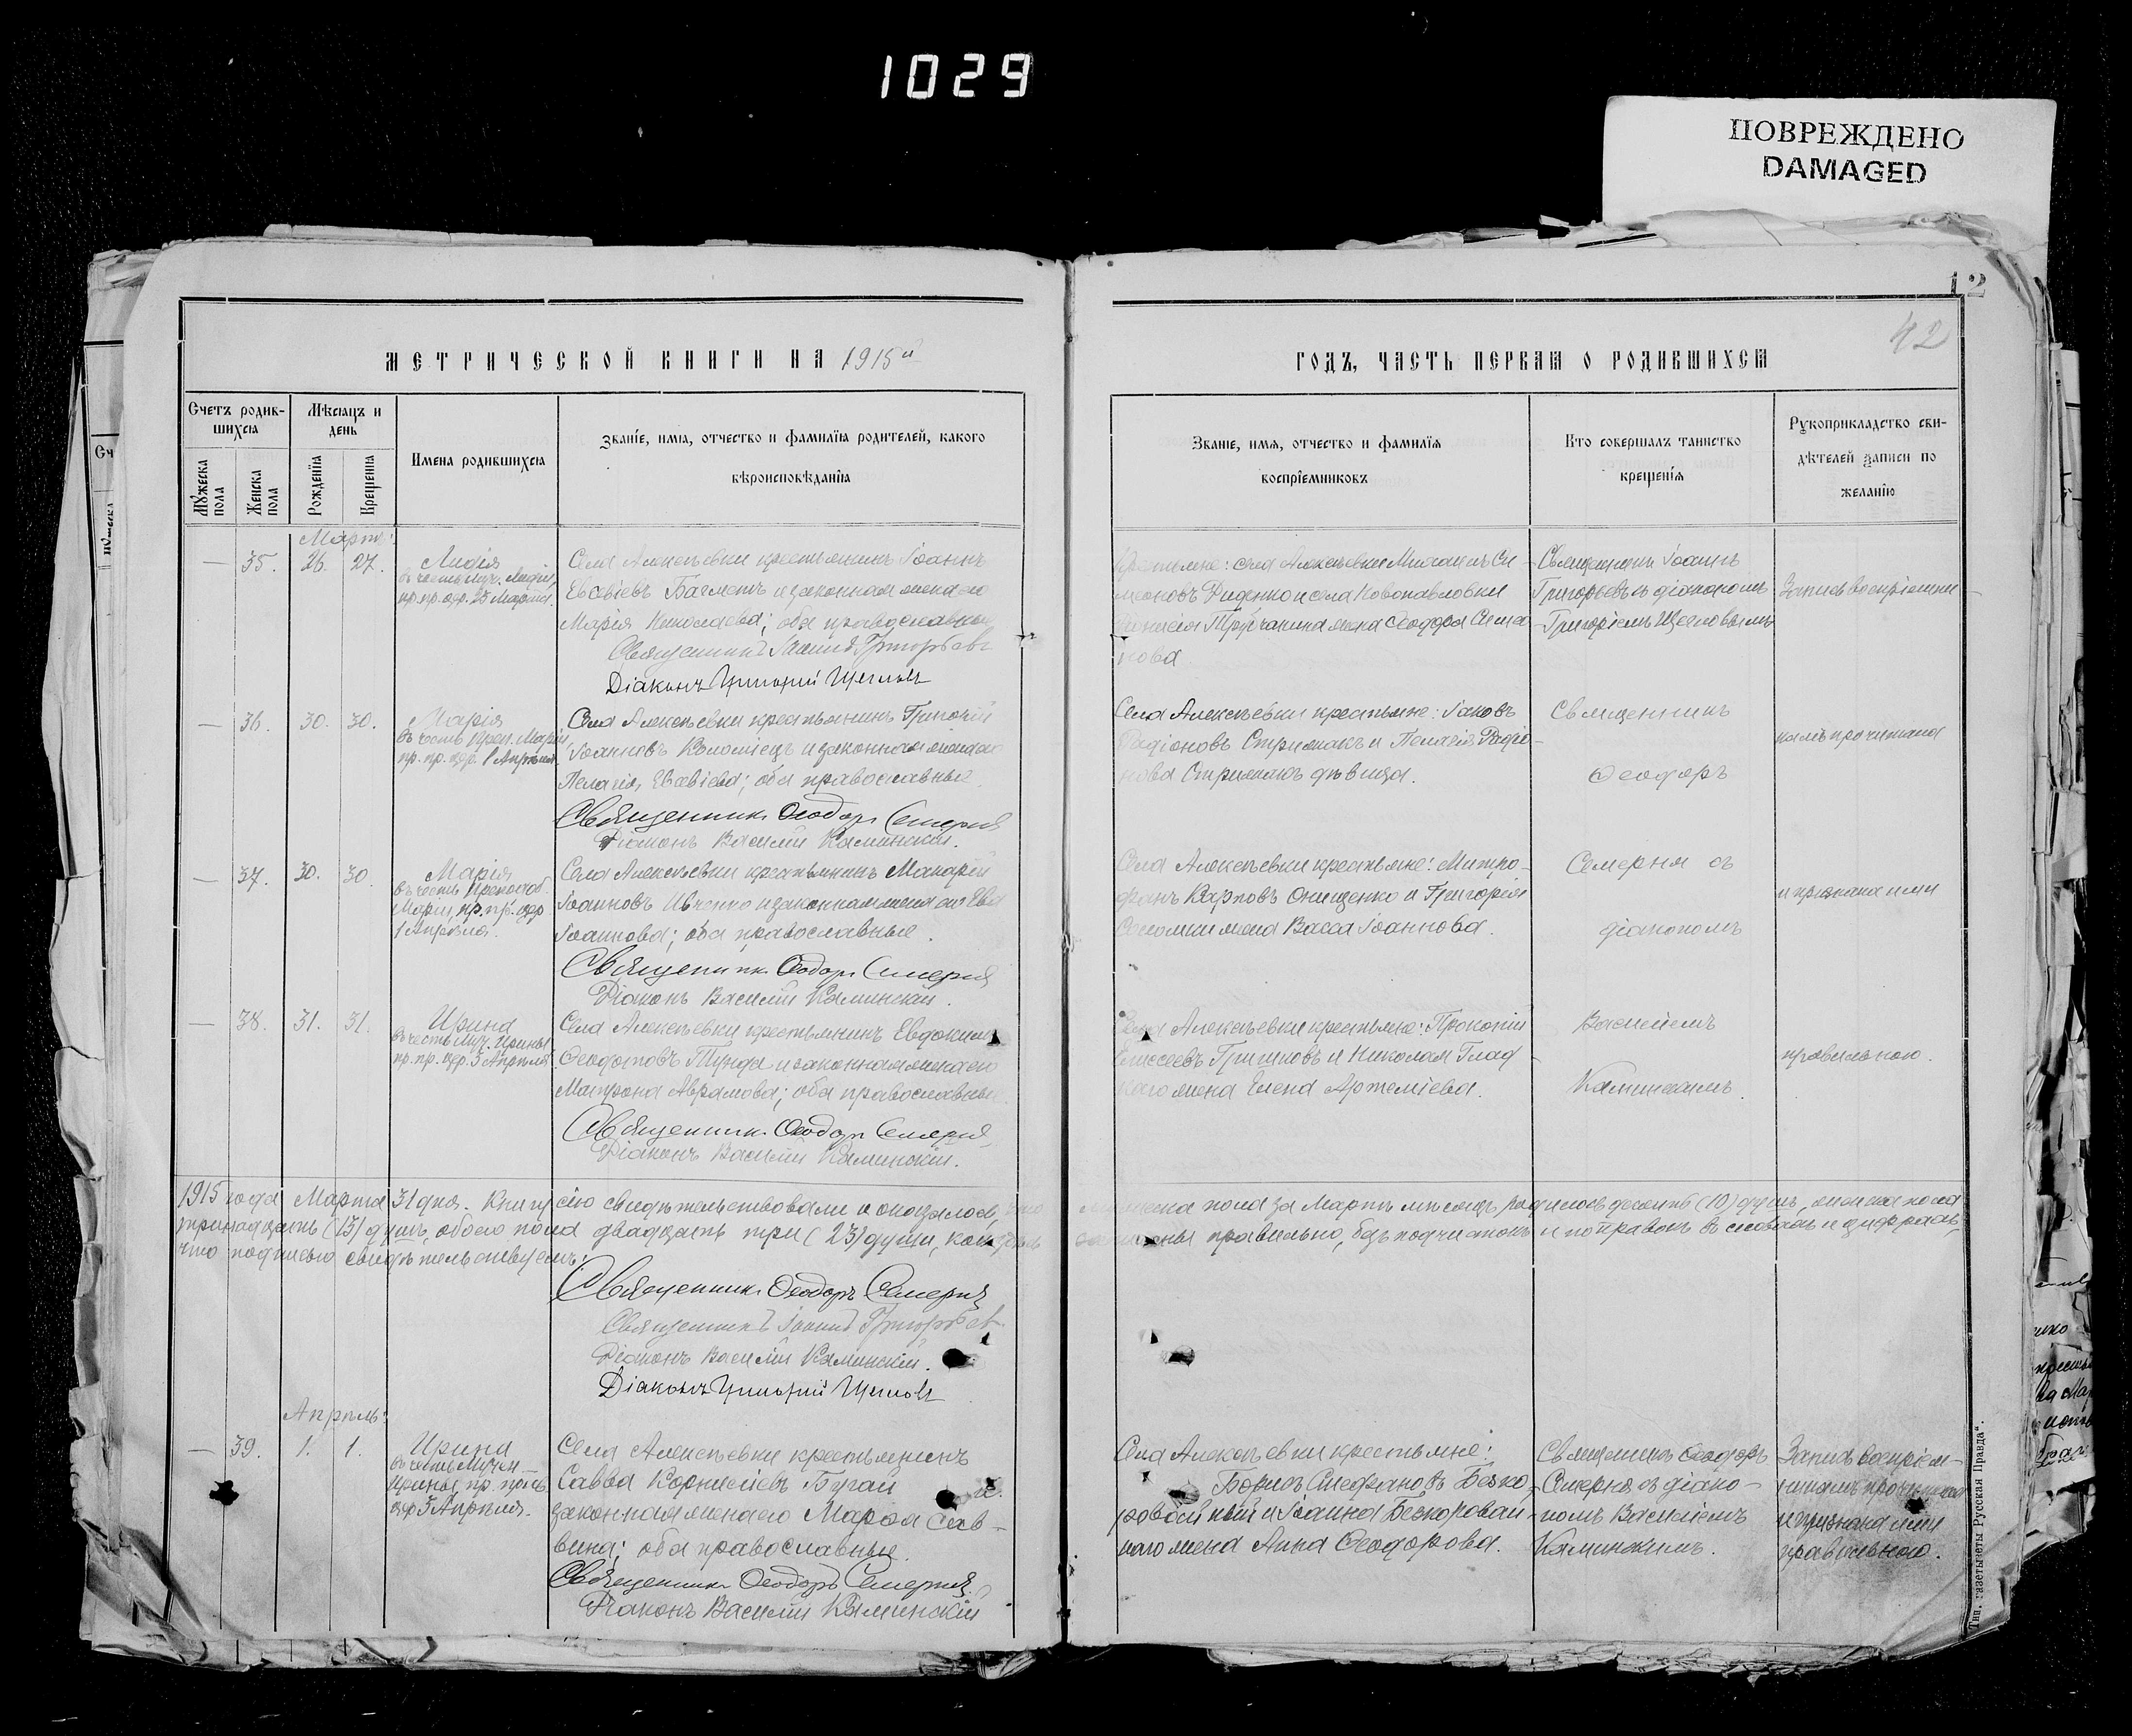 1029
ПОВРЕЖДЕНО
DAMAGED
12
42
МЕТРИЧЕСКОЙ КНИГИ НА 1915й
ГОДЪ, ЧАСТЬ ПЕРВАЯ О РОДИВШИХСЯ
Счетъ родив-
шихся
Мужеска пола
Женска пола
Мѣсяцъ и
день
Рожденїя
Крещенїя
Имена родившихся
Званїе, имя, отчество и фамилїя родителей, какого
вѣроисповѣданїя
Званїе, имя, отчество и фамилїя
воспрїемниковъ
Кто совершалъ таинство
крещенїя
Рукоприкладство сви-
дѣтелей записи по
желанїю
Мартъ:
— 35. 26. 27.
Лидія
въ честь муч. Лидіи,
пр. пр. цер. 23 Марта.
Села Алексѣевки крестьянинъ Іоаннъ
Евсевіевъ Багметъ и законная жена его
Марія Николаева; оба православные
Священникъ Іоаннъ Григорьевъ
Діаконъ Григорій Щегловъ
Крестьяне: села Алексѣевки Михаилъ Си-
меоновъ Диденко и села Новопавловки
жена Ѳеодора Симо-
нова
Священникъ Іоаннъ
Григорьевъ съ діакономъ
Григоріемъ Щегловымъ
Запись воспріемни-
— 36. 30. 30.
Марія
въ честь Преп. Маріи,
пр. пр. цер. 1 Апрѣля
Села Алексѣевки крестьянинъ Григорій
Іоанновъ Коломіецъ и законная жена его
Пелагія Евсевіева; оба православные.
Священник Ѳеодор Семерня
Діаконъ Василій Каминскій.
Села Алексѣевки крестьяне: Іаковъ
Радіоновъ Стрижакъ и Пелагія Радіо-
нова Стрижакъ дѣвица.
Священникъ
Ѳеодоръ
камъ прочитана
— 37. 30. 30.
Марія
въ честь Преподоб.
Маріи, пр. пр. цер.
1 Апрѣля.
Села Алексѣевки крестьянинъ Макарій
Іоанновъ Ивченко и законная жена его Ева
Іоаннова; оба православные.
Священник Ѳеодор Семерня
Діаконъ Василій Каминскій.
Села Алексѣевки крестьяне: Митро-
фанъ Карповъ Онищенко и Григорія
жена Васса Іоаннова.
Семерня съ
діакономъ
и признана ими
— 38. 31. 31.
Ирина
въ честь муч. Ирины
пр. пр. цер. 5 Апрѣля
Села Алексѣевки крестьянинъ Евдокимъ
Ѳеодотовъ Тунда и законная жена его
Матрона Аврамова; оба православные.
Священник Ѳеодор Семерня
Діаконъ Василій Каминскій.
Села Алексѣевки крестьяне: Прокопій
Елисеевъ Гришковъ и Николая Глад-
каго жена Елена Артеміева.
Василіемъ
Каминскимъ.
правильною.
1915 года Марта 31 дня. Книгу сію свидѣтельствовали и оказалось, что мужеска пола за Мартъ мѣсяцъ родилось десять (10) душъ, женска пола
тринадцать (13) душъ, обоего пола двадцать три (23) души, правильно, безъ подчистокъ и поправокъ въ словахъ и цифрахъ,
что подписью свидѣтельствуемъ:
Священник Ѳеодоръ Семерня
Священникъ Іоаннъ Григорьевъ
Діаконъ Василій Каминскій.
Діаконъ Григорій Щегловъ
Апрѣль:
— 39. 1. 1.
Ирина
въ честь Мучен
Ирины, пр. прав.
цер. 5 Апрѣля.
Села Алексѣевки крестьянинъ
Савва Корниліевъ Бугай и
законная жена его Марѳа Сав-
вина; оба православные.
Священник Ѳеодоръ Семерня
Діаконъ Василій Каминскій
Села Алексѣевки крестьяне:
Борисъ Стефановъ Безко-
ровайный и Іоанна Безкоровай-
наго жена Анна Ѳеодорова.
Священникъ Ѳеодоръ
Семерня съ діако-
номъ Василіемъ
Каминскимъ.
Запись воспріем-
никамъ прочитана
и признана ими
правильною.
Тип. газеты "Русская Правда".